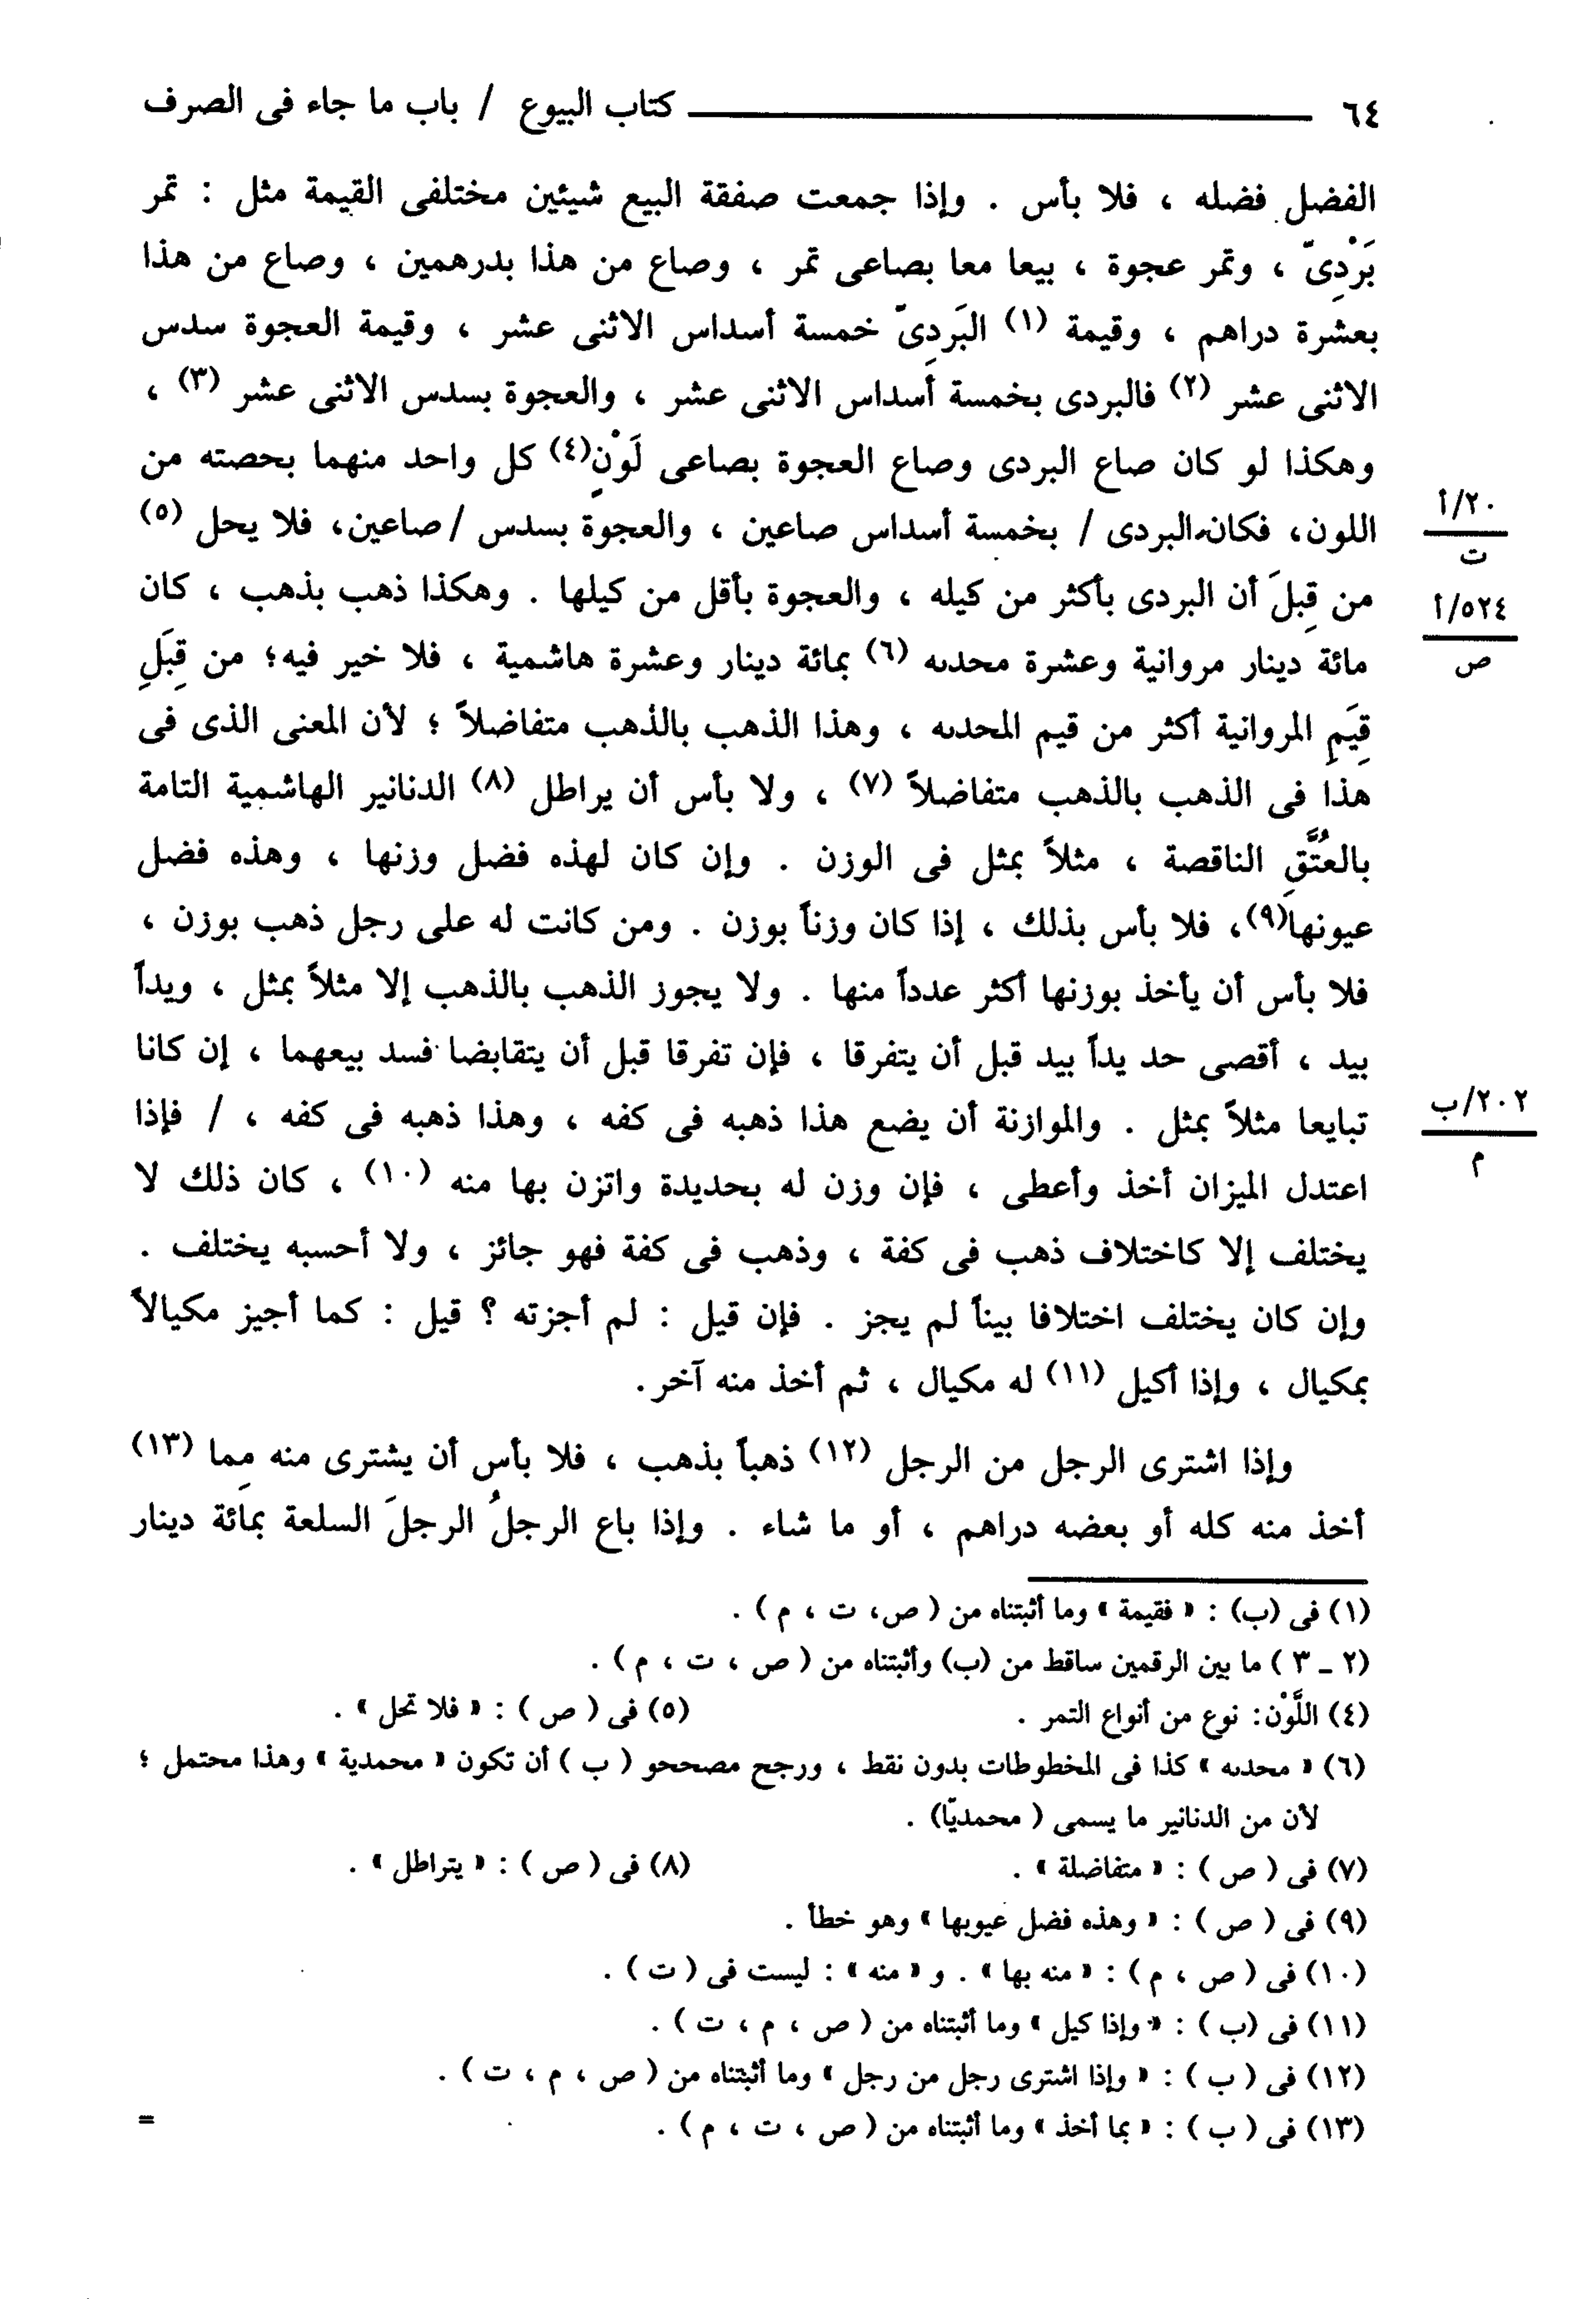 ٦٤ كتاب البيوع / باب ما جاء فى الصرف
الفضل فضله ، فلا بأس . وإذا جمعت صفقة البيع شيئين مختلفى القيمة مثل : تمر
بَرْدِىّ ، وتمر عجوة ، بيعا معا بصاعى تمر ، وصاع من هذا بدرهمين ، وصاع من هذا
بعشرة دراهم ، وقيمة (١) البَردِىّ خمسة أسداس الاثنى عشر ، وقيمة العجوة سدس
الاثنى عشر (٢) فالبردى بخمسة أسداس الاثنى عشر ، والعجوة بسدس الاثنى عشر (٣) ،
وهكذا لو كان صاع البردى وصاع العجوة بصاعى لَوْنٍ(٤) كل واحد منهما بحصته من
اللون، فكان البردى / بخمسة أسداس صاعين ، والعجوة بسدس /صاعين، فلا يحل (٥)
٢٠/أ
ت
من قِبلَ أن البردى بأكثر من كيله ، والعجوة بأقل من كيلها . وهكذا ذهب بذهب ، كان
٥٢٤/أ
ص
مائة دينار مروانية وعشرة محدٮه (٦) بمائة دينار وعشرة هاشمية ، فلا خير فيه؛ من قِبَلِ
قِيَمِ المروانية أكثر من قيم المحدٮه ، وهذا الذهب بالذهب متفاضلاً ؛ لأن المعنى الذى فى
هذا فى الذهب بالذهب متفاضلاً (٧) ، ولا بأس أن يراطل (٨) الدنانير الهاشمية التامة
بالعُتَّقِ الناقصة ، مثلاً بمثل فى الوزن . وإن كان لهذه فضل وزنها ، وهذه فضل
عيونها(٩)، فلا بأس بذلك ، إذا كان وزناً بوزن . ومن كانت له على رجل ذهب بوزن ،
فلا بأس أن يأخذ بوزنها أكثر عدداً منها . ولا يجوز الذهب بالذهب إلا مثلاً بمثل ، ويداً
بيد ، أقصى حد يداً بيد قبل أن يتفرقا ، فإن تفرقا قبل أن يتقابضا فسد بيعهما ، إن كانا
تبايعا مثلاً بمثل . والموازنة أن يضع هذا ذهبه فى كفه ، وهذا ذهبه فى كفه ، / فإذا
٢٠٢/ب
م
اعتدل الميزان أخذ وأعطى ، فإن وزن له بحديدة واتزن بها منه (١٠) ، كان ذلك لا
يختلف إلا كاختلاف ذهب فى كفة ، وذهب فى كفة فهو جائز ، ولا أحسبه يختلف .
وإن كان يختلف اختلافا بيناً لم يجز . فإن قيل : لم أجزته ؟ قيل : كما أجيز مكيالاً
بمكيال ، وإذا أكيل (١١) له مكيال ، ثم أخذ منه آخر.
وإذا اشترى الرجل من الرجل (١٢) ذهباً بذهب ، فلا بأس أن يشترى منه مِما (١٣)
أخذ منه كله أو بعضه دراهم ، أو ما شاء . وإذا باع الرجلُ الرجلَ السلعة بمائة دينار
(١) فى (ب) : « فقيمة » وما أثبتناه من ( ص، ت ، م ) .
(٢ - ٣ ) ما بين الرقمين ساقط من (ب) وأثبتناه من ( ص ، ت ، م ) .
(٤) اللَّوْن: نوع من أنواع التمر . (٥) فى ( ص ) : « فلا تحل » .
(٦) « محدٮه » كذا فى المخطوطات بدون نقط ، ورجح مصححو ( ب ) أن تكون « محمدية » وهذا محتمل ؛
لأن من الدنانير ما يسمى ( محمديّا) .
(٧) فى ( ص ) : « متفاضلة » . (٨) فى ( ص ) : « يتراطل » .
(٩) فى ( ص ) : « وهذه فضل عيوبها » وهو خطأ .
(١٠) فى ( ص ، م ) : « منه بها » . و « منه » : ليست فى ( ت ) .
(١١) فى (ب ) : « وإذا كيل » وما أثبتناه من ( ص ، م ، ت ) .
(١٢) فى ( ب ) : « وإذا اشترى رجل من رجل » وما أثبتناه من ( ص ، م ، ت ) .
(١٣) فى ( ب ) : « بما أخذ » وما أثبتناه من ( ص ، ت ، م ) .
=